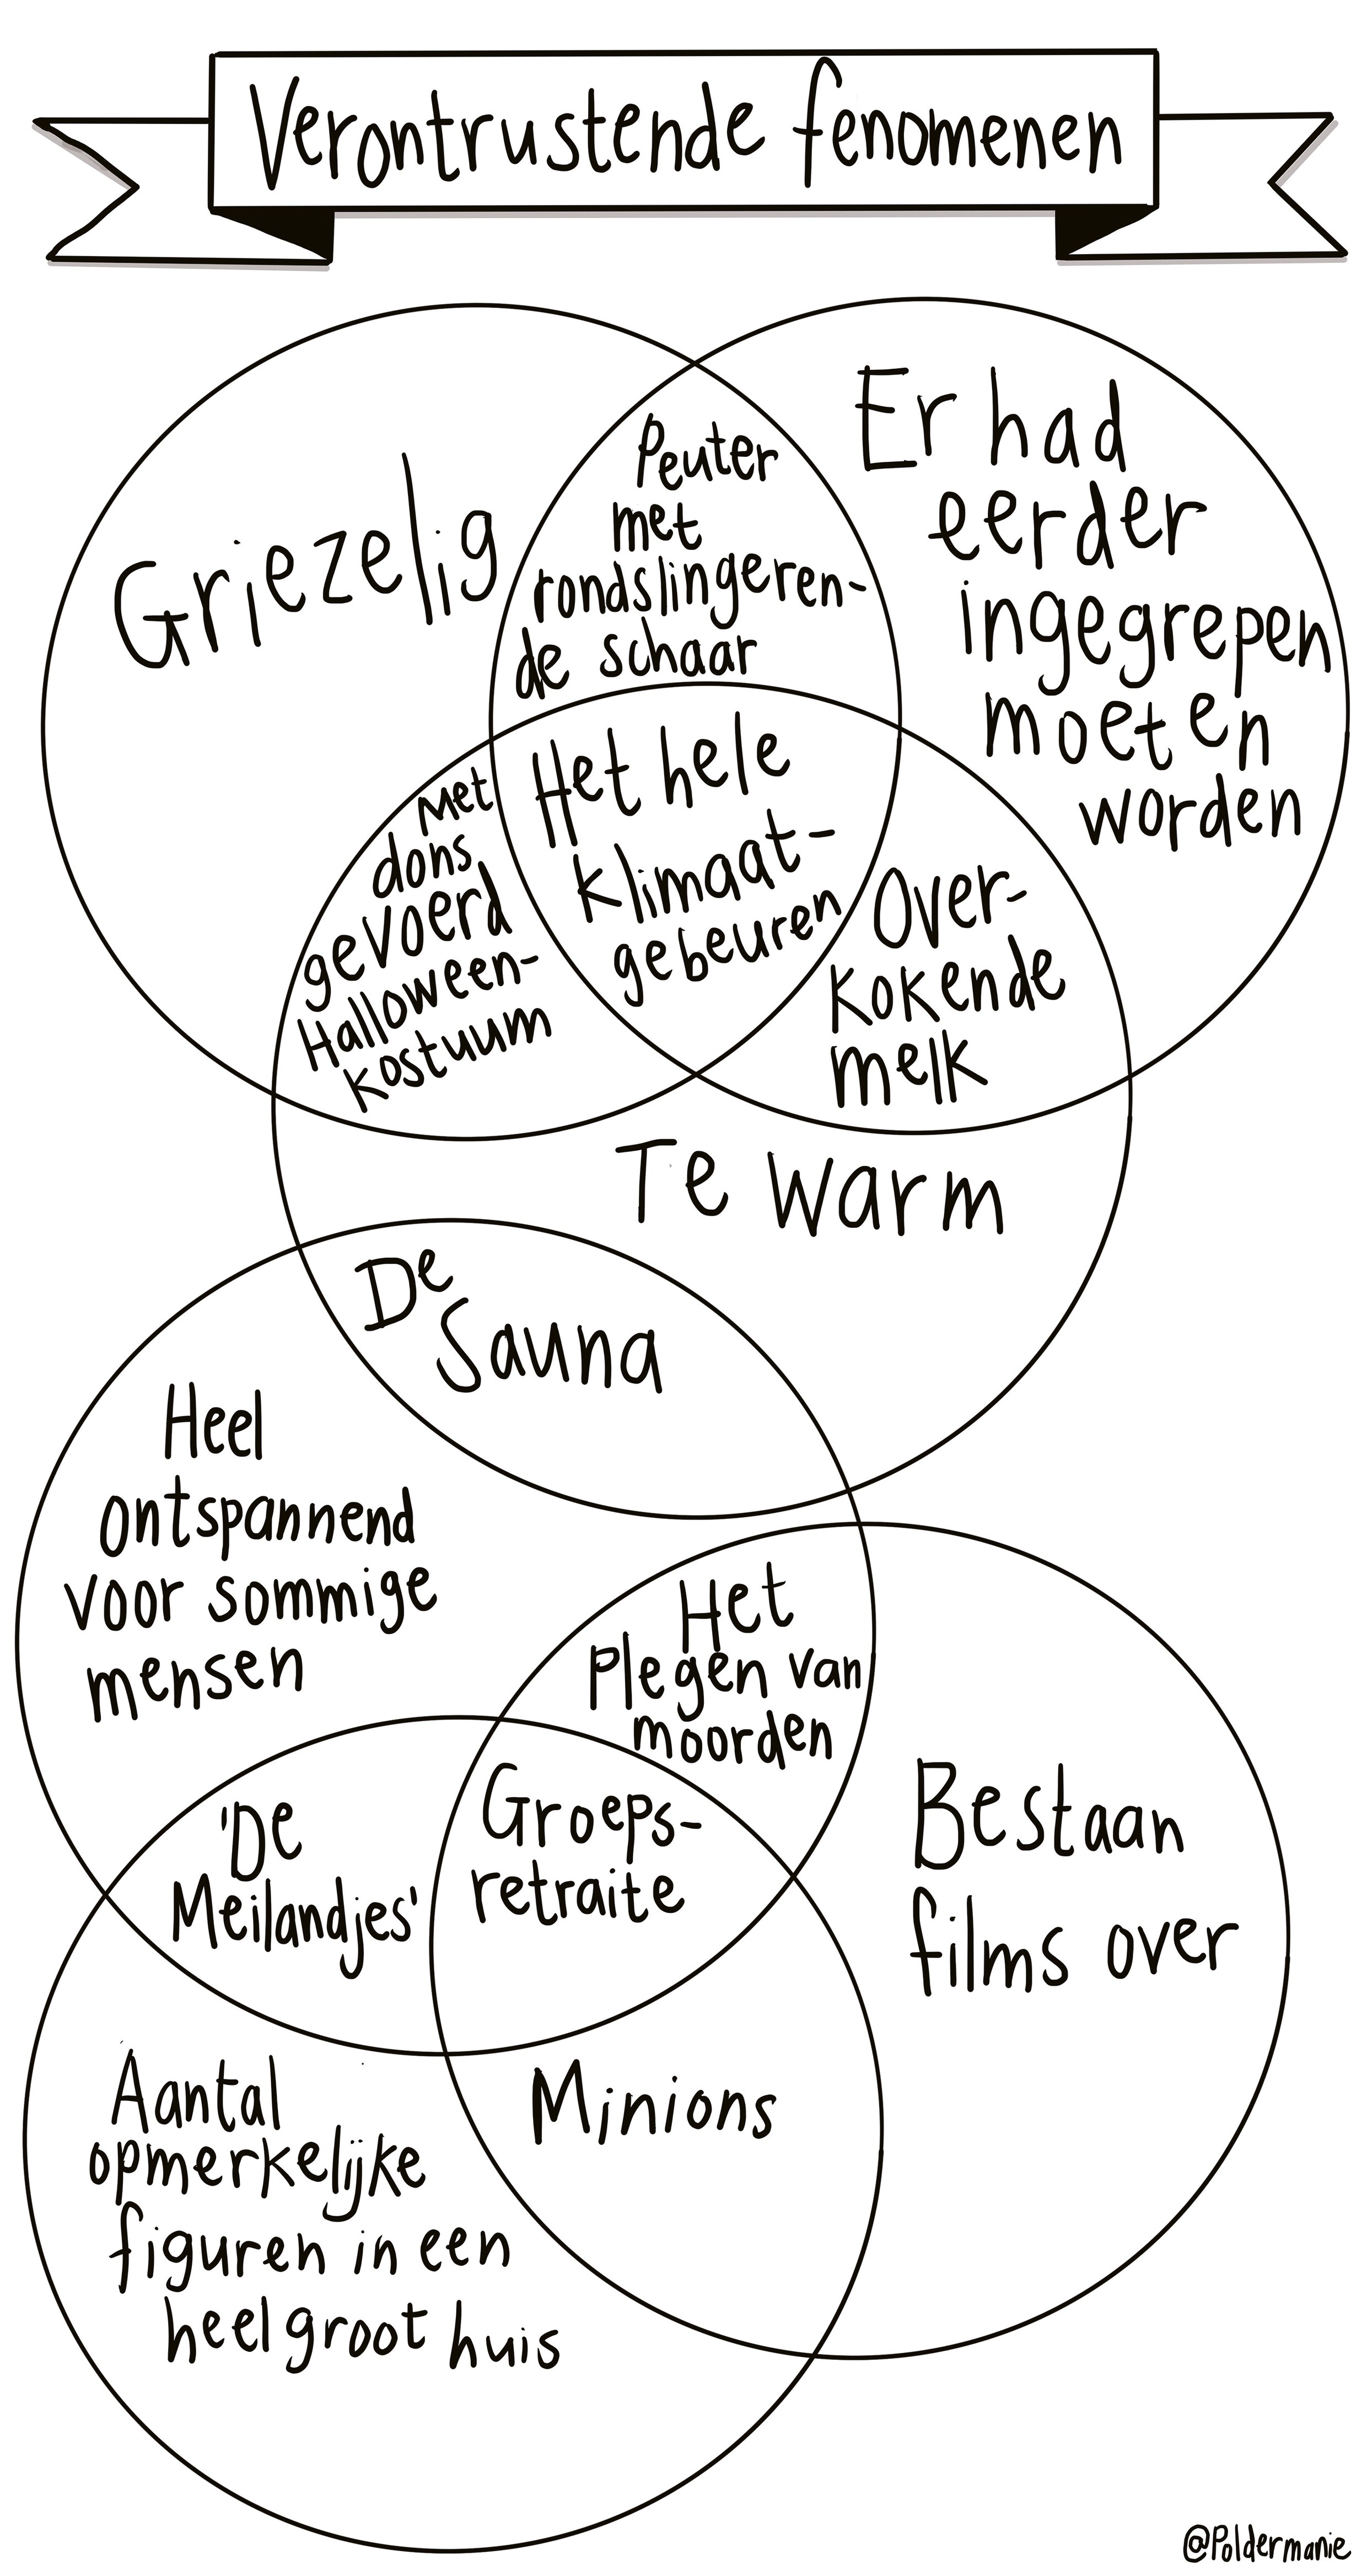 Verontrustende fenomenen
Griezelig
Peuter
met
rondslingeren-
de schaar
Er had
eerder
ingegrepen
moeten
worden
Met
dons
gevoerd
Halloween-
kostuum
Het hele
klimaat-
gebeuren
Over-
kokende
melk
Te warm
De
Sauna
Heel
ontspannend
voor sommige
mensen
Het
plegen van
moorden
'De
Meilandjes'
Groeps-
retraite
Bestaan
films over
Aantal
opmerkelijke
figuren in een
heel groot huis
Minions
@Poldermanie